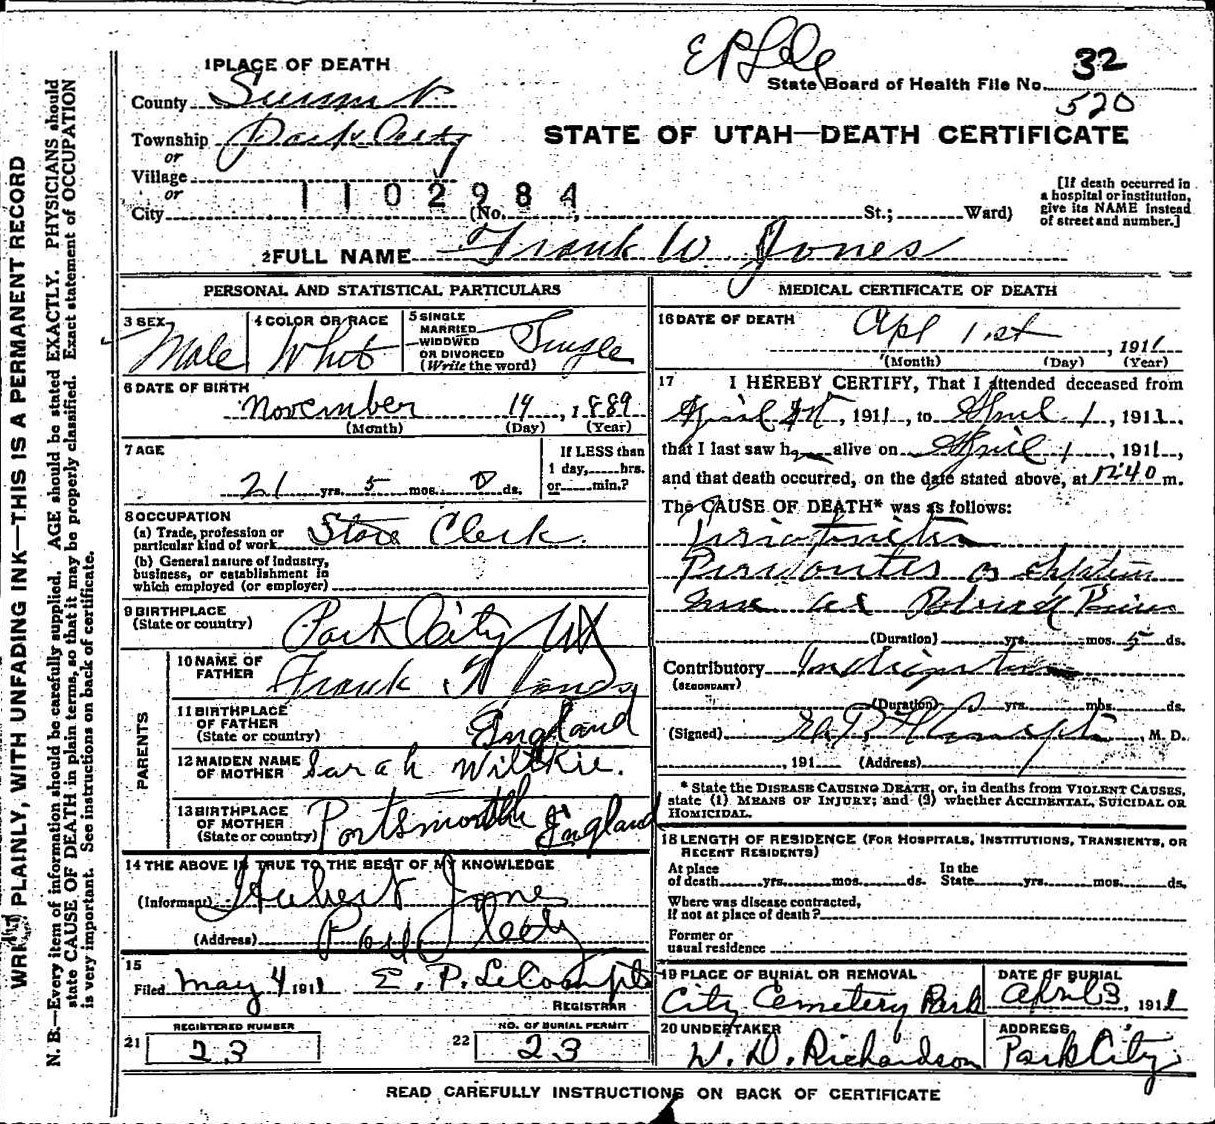 WRITE PLAINLY, WITH UNFADING INK—THIS IS A PERMANENT RECORD
N. B.—Every item of information should be carefully supplied. AGE should be stated EXACTLY. PHYSICIANS should
state CAUSE OF DEATH in plain terms, so that it may be properly classified. Exact statement of OCCUPATION
is very important. See instructions on back of certificate.
1 PLACE OF DEATH
County Summit
State Board of Health File No. 32
520
Township Park City
or
Village
or
STATE OF UTAH—DEATH CERTIFICATE
1102984
City (No. , St.; Ward)
[If death occurred in
a hospital or institution,
give its NAME instead
of street and number.]
2 FULL NAME Frank W Jones
PERSONAL AND STATISTICAL PARTICULARS
3 SEX
Male
4 COLOR OR RACE
Whit
5 SINGLE
MARRIED
WIDOWED
OR DIVORCED
(Write the word)
Single
6 DATE OF BIRTH
November 19, 1889
(Month) (Day) (Year)
7 AGE
21 yrs. 5 mos. 0 ds.
If LESS than
1 day, hrs.
or min.?
8 OCCUPATION
(a) Trade, profession or
particular kind of work Store Clerk
(b) General nature of industry,
business, or establishment in
which employed (or employer)
9 BIRTHPLACE
(State or country)
Park City Ut
PARENTS
10 NAME OF
FATHER
Frank Jones
11 BIRTHPLACE
OF FATHER
(State or country)
England
12 MAIDEN NAME
OF MOTHER
Sarah Wilkie.
13 BIRTHPLACE
OF MOTHER
(State or country)
Portsmouth England
14 THE ABOVE IS TRUE TO THE BEST OF MY KNOWLEDGE
(Informant) Hubert Jones
(Address) Park City
15
Filed May 4 1911 E. P. LeCompte
REGISTRAR
21 REGISTERED NUMBER
23
22 NO. OF BURIAL PERMIT
23
MEDICAL CERTIFICATE OF DEATH
16 DATE OF DEATH
Apl 1st, 1911
(Month) (Day) (Year)
17 I HEREBY CERTIFY, That I attended deceased from
April 1st, 1911, to April 1, 1911.
that I last saw h alive on April 1, 1911,
and that death occurred, on the date stated above, at 1240 m.
The CAUSE OF DEATH* was as follows:
(Duration) yrs. mos. 5 ds.
Contributory
(SECONDARY)
(Duration) yrs. mos. ds.
(Signed) E. P. LeCompte, M. D.
, 191 (Address)
* State the DISEASE CAUSING DEATH, or, in deaths from VIOLENT CAUSES,
state (1) MEANS OF INJURY; and (2) whether ACCIDENTAL, SUICIDAL OR
HOMICIDAL.
18 LENGTH OF RESIDENCE (FOR HOSPITALS, INSTITUTIONS, TRANSIENTS, OR
RECENT RESIDENTS)
At place
of death yrs. mos. ds.
In the
State yrs. mos. ds.
Where was disease contracted,
if not at place of death?
Former or
usual residence
19 PLACE OF BURIAL OR REMOVAL
City Cemetery Park
DATE OF BURIAL
April 3, 1911
20 UNDERTAKER
W. D. Richardson
ADDRESS
Park City
READ CAREFULLY INSTRUCTIONS ON BACK OF CERTIFICATE